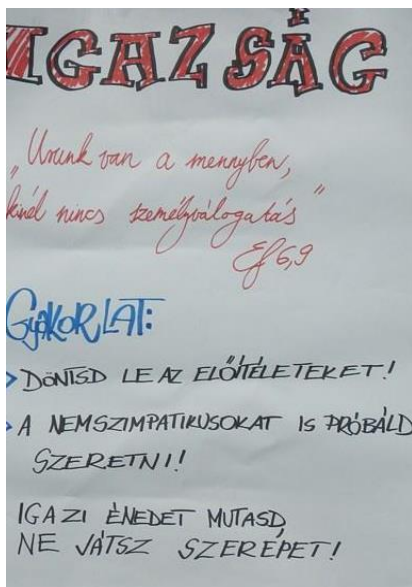 IGAZSÁG
„Urunk van a mennyben,
kinél nincs személyválogatás"
Ef 6,9
GYAKORLAT:
> DÖNTSD LE AZ ELŐÍTÉLETEKET!
> A NEMSZIMPATIKUSOKAT IS PRÓBÁLD
SZERETNI!
IGAZI ÉNEDET MUTASD,
NE JÁTSZ SZEREPET!